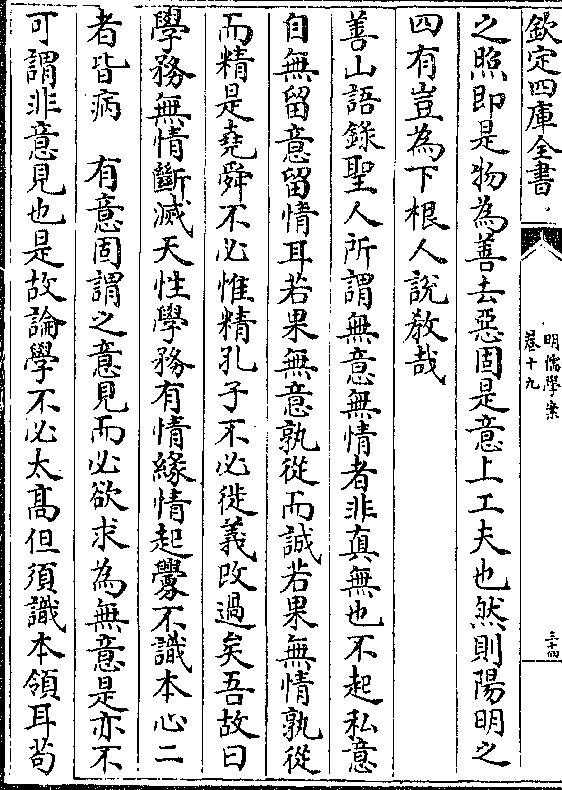 欽定四庫全書
明儒學案
卷十九
三十四
之照即是物為善去惡固是意上工夫也然則陽明之
四有豈為下根人說教哉
善山語錄聖人所謂無意無情者非真無也不起私意
自無留意留情耳若果無意孰從而誠若果無情孰從
而精是堯舜不必惟精孔子不必徙義改過矣吾故曰
學務無情斷滅天性學務有情緣情起釁不識本心二
者皆病　有意固謂之意見而必欲求為無意是亦不
可謂非意見也是故論學不必太高但須識本領耳茍